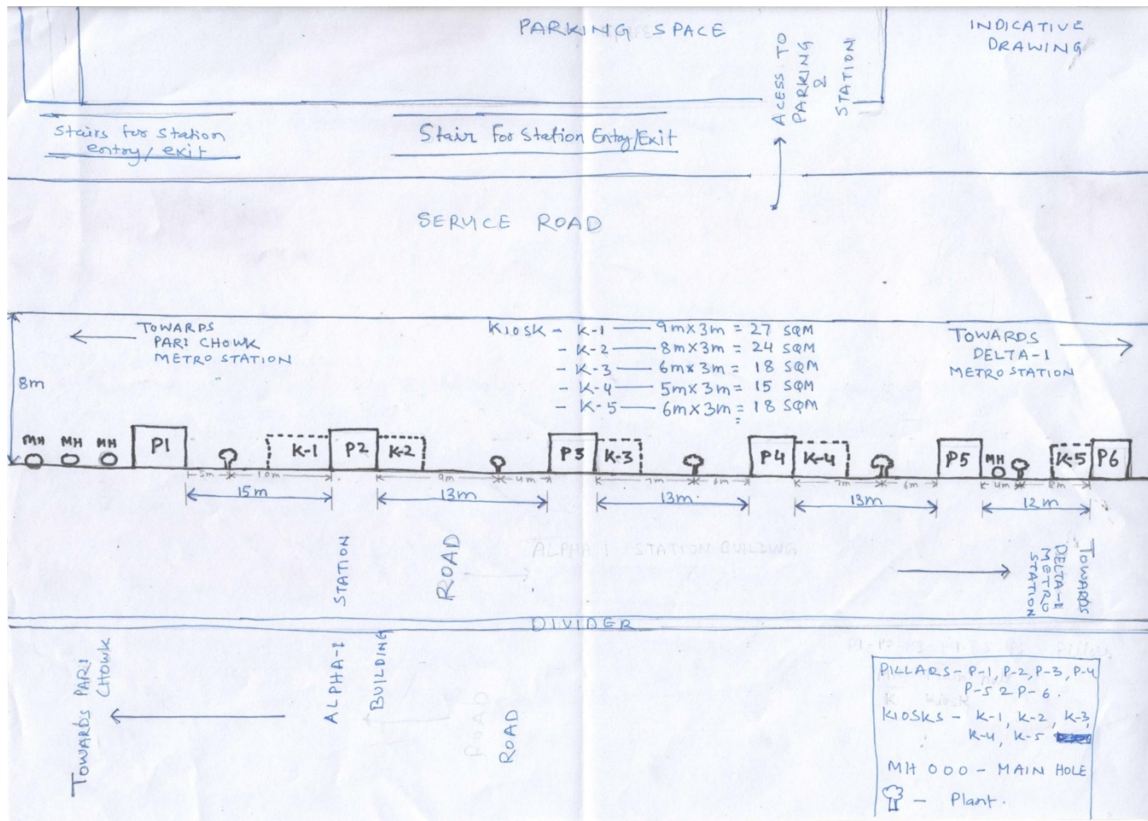 PARKING SPACE
INDICATIVE
DRAWING
ACESS TO
PARKING
&
STATION
Stairs for Station
entry/exit
Stair For Station Entry/Exit
SERVICE ROAD
TOWARDS
PARI CHOWK
METRO STATION
KIOSK - K-1 — 9m×3m = 27 SQM
- K-2 — 8m×3m = 24 SQM
- K-3 — 6m×3m = 18 SQM
- K-4 — 5m×3m = 15 SQM
- K-5 — 6m×3m = 18 SQM
TOWARDS
DELTA-1
METRO STATION
8m
MH MH MH P1 K-1 P2 K-2 P3 K-3 P4 K-4 P5 MH K-5 P6
5m 10m 9m 4m 7m 6m 7m 6m 4m 8m
15m 13m 13m 13m 12m
ALPHA-I STATION BUILDING
ROAD
TOWARDS
DELTA-1
METRO
STATION
DIVIDER
TOWARDS PARI
CHOWK
ROAD
PILLARS - P-1, P-2, P-3, P-4
P-5 & P-6.
KIOSKS - K-1, K-2, K-3,
K-4, K-5
MH 000 - MAIN HOLE
- Plant.